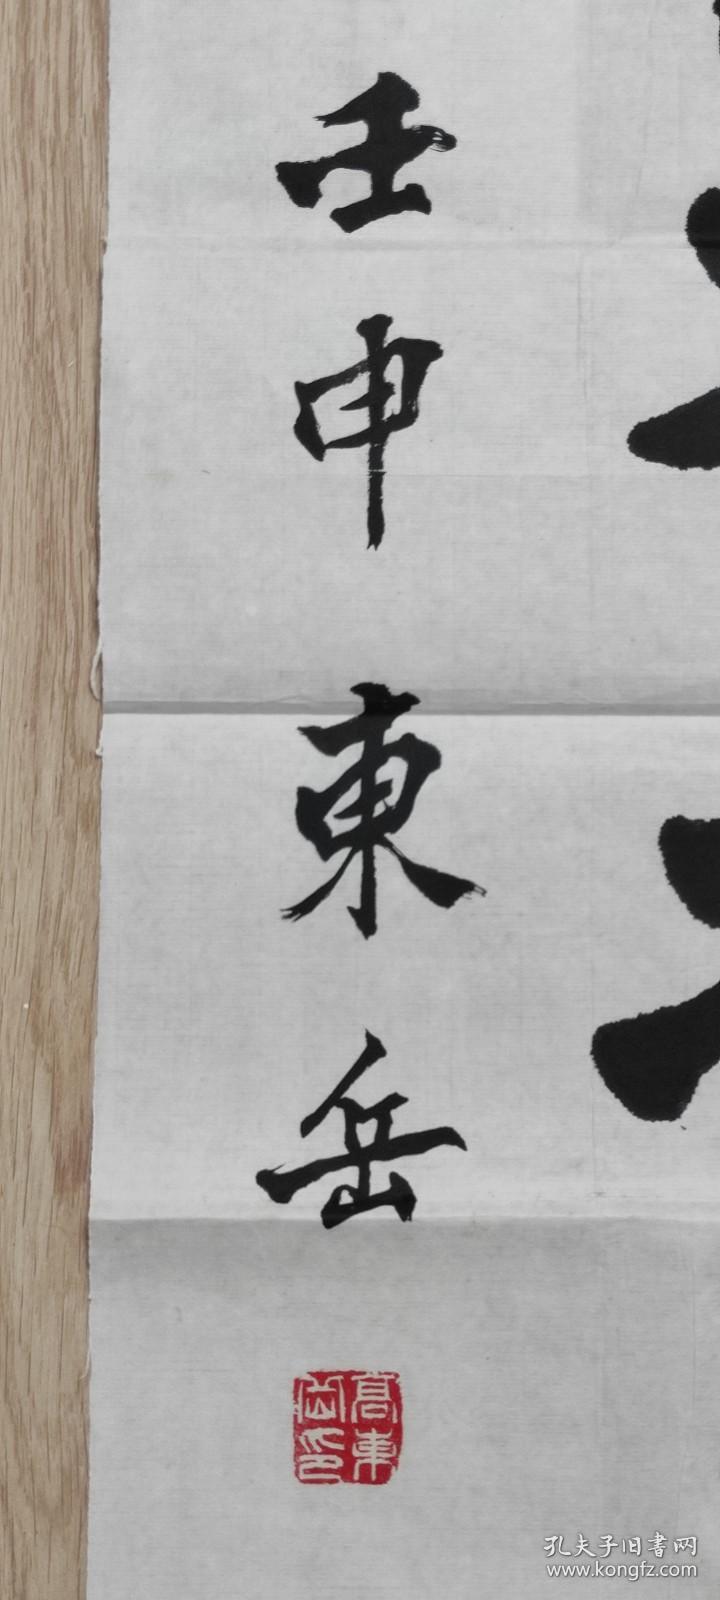 壬申東岳
高東岳印
孔夫子旧书网
www.kongfz.com